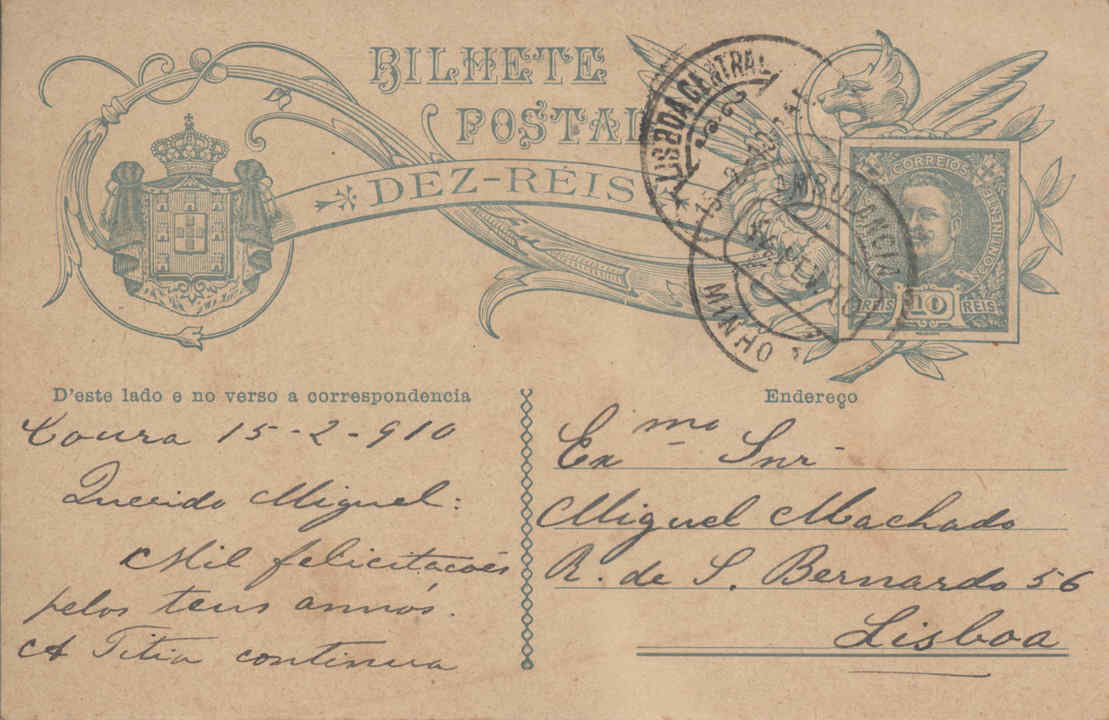 BILHETE
POSTAL
DEZ-RÉIS
LISBOA CENTRAL
AMBULANCIA
MINHO
CORREIOS
CONTINENTE
REIS 10 REIS
D'este lado e no verso a correspondencia
Coura 15-2-910
Querido Miguel:
Mil felicitacões
pelos teus annos.
A Titia continua
Endereço
Exmo Snr
Miguel Machado
R. de S. Bernardo 56
Lisboa